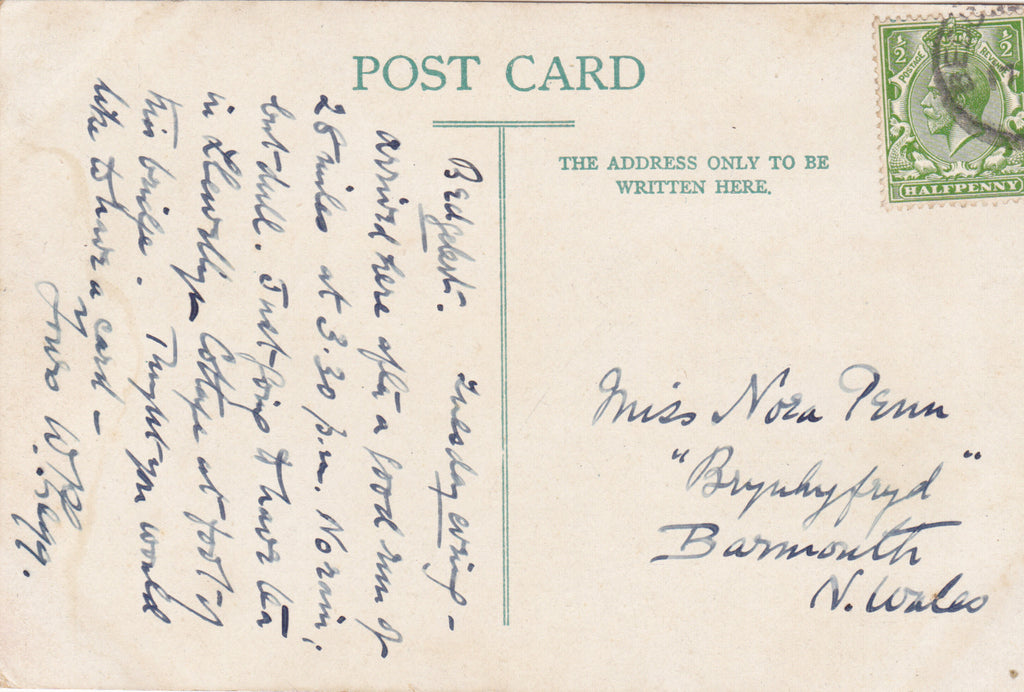 POST CARD
THE ADDRESS ONLY TO BE
WRITTEN HERE.
½ ½
POSTAGE REVENUE
HALFPENNY
Bedgelert. Tuesday evening –
Arrived here after a good run of
28 miles at 3.30 p.m. No rain;
but dull. Just going to have tea
in Llewellyn Cottage at foot of
this bridge. Thought you would
like to have a card –
Yours W.
Miss Nora Penn
"Brynhyfryd"
Barmouth
N. Wales